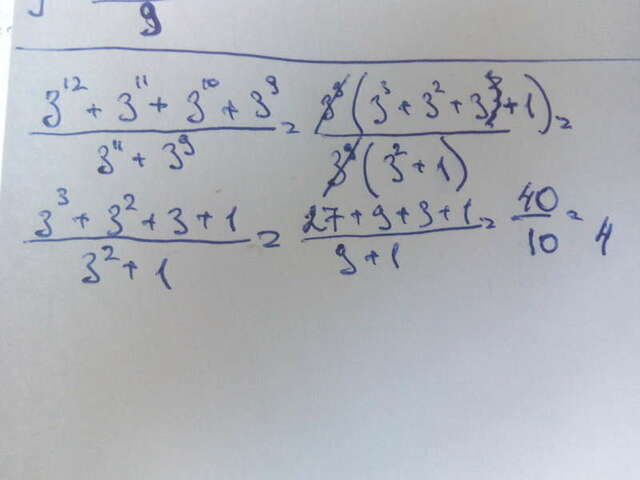 9
3¹² + 3¹¹ + 3¹⁰ + 3⁹ / 3¹¹ + 3⁹ = 3⁹(3³ + 3² + 3 + 1) / 3⁹(3² + 1) =
3³ + 3² + 3 + 1 / 3² + 1 = 27 + 9 + 3 + 1 / 9 + 1 = 40 / 10 = 4